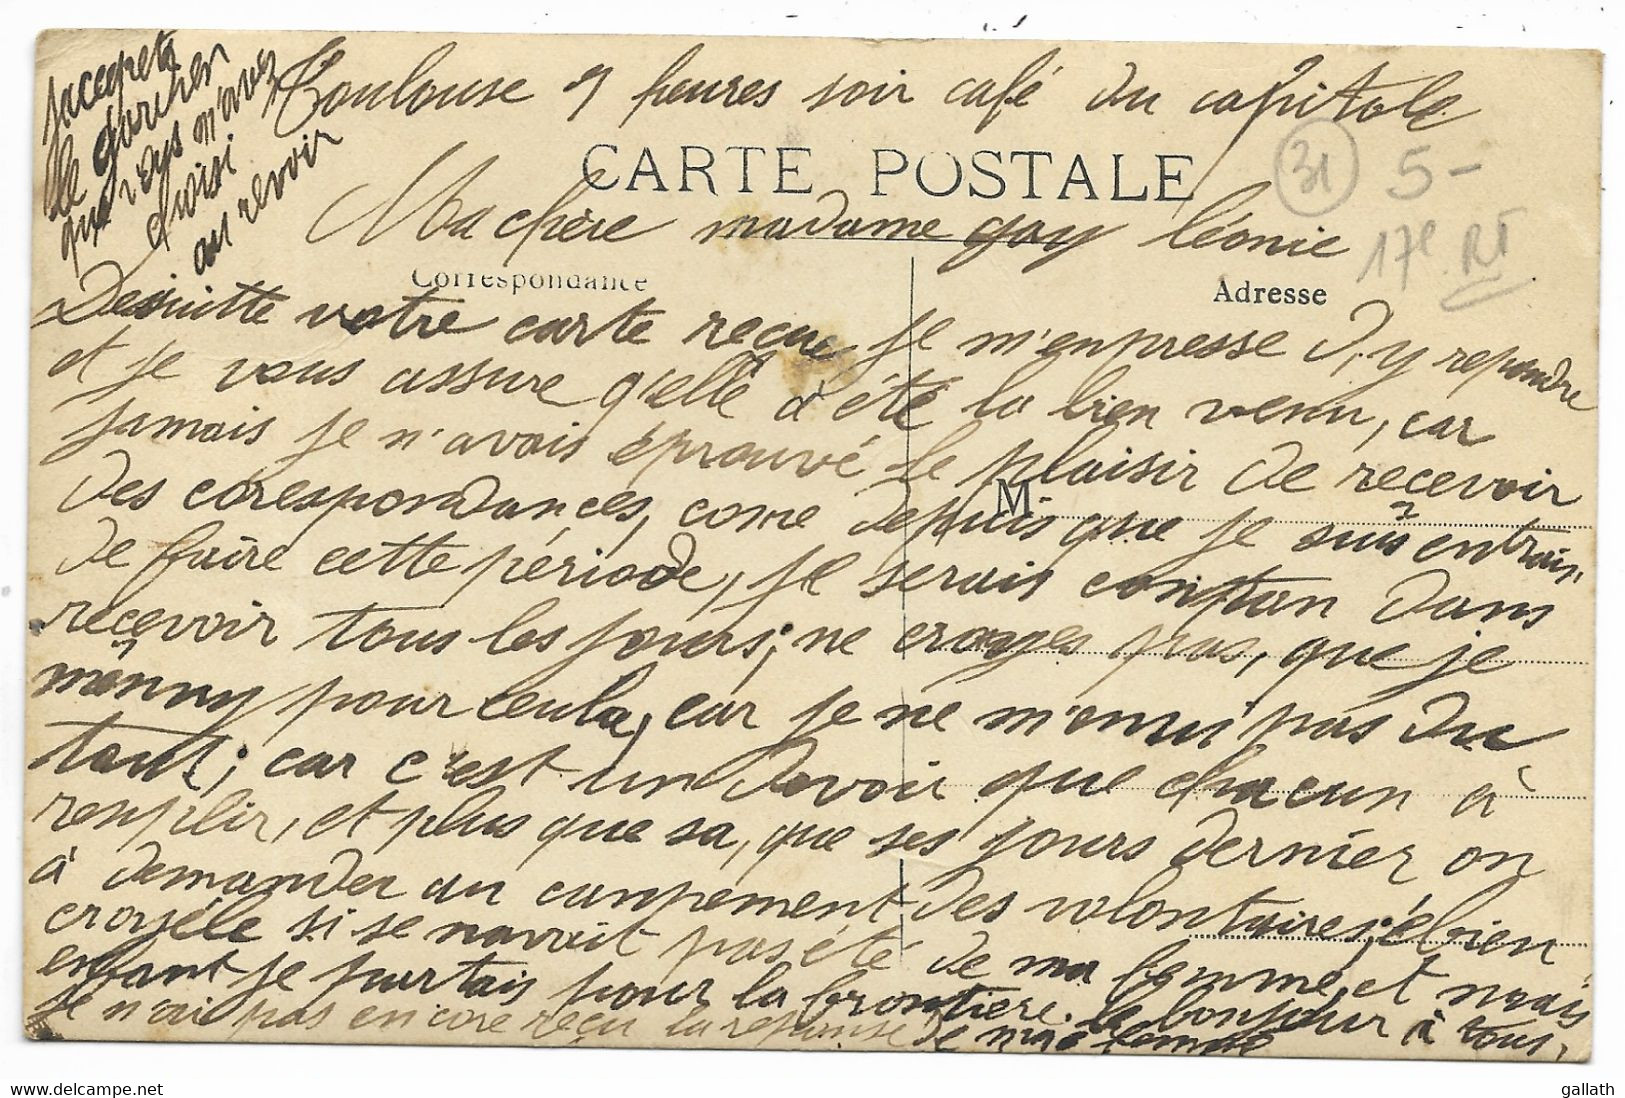 Toulouse 9 heures soir café du capitole
CARTE POSTALE
31
5-
17e RI
Ma chère madame gay léonie
Correspondance
Adresse
De suitte votre carte reçue je m'enpresse d,y repondre
et je vous assure q'elle a été la bien venu, car
jamais je n'avois éprouvé le plaisir de recevoir
des corespondances, come depuis que je suis entrain
M
de faire cette période, je serais contan dans
recevoir tous les jours; ne croyes pas, que je
mennuy pour ceula, car je ne m'ennui pas du
tout; car c'est un devoir que chacun à
renplir, et plus que sa, que ses jours dernier on
à demander au canpement des volontaires; ébien
croyéle si se navait pas été de ma femme et mais
enfant je partais pour la frontiere. le bonjour à tous,
je n'ai pas encore reçu la reponse de ma femme
j'accepete
le
que vous m'avez
choisi
au revoir
gallath